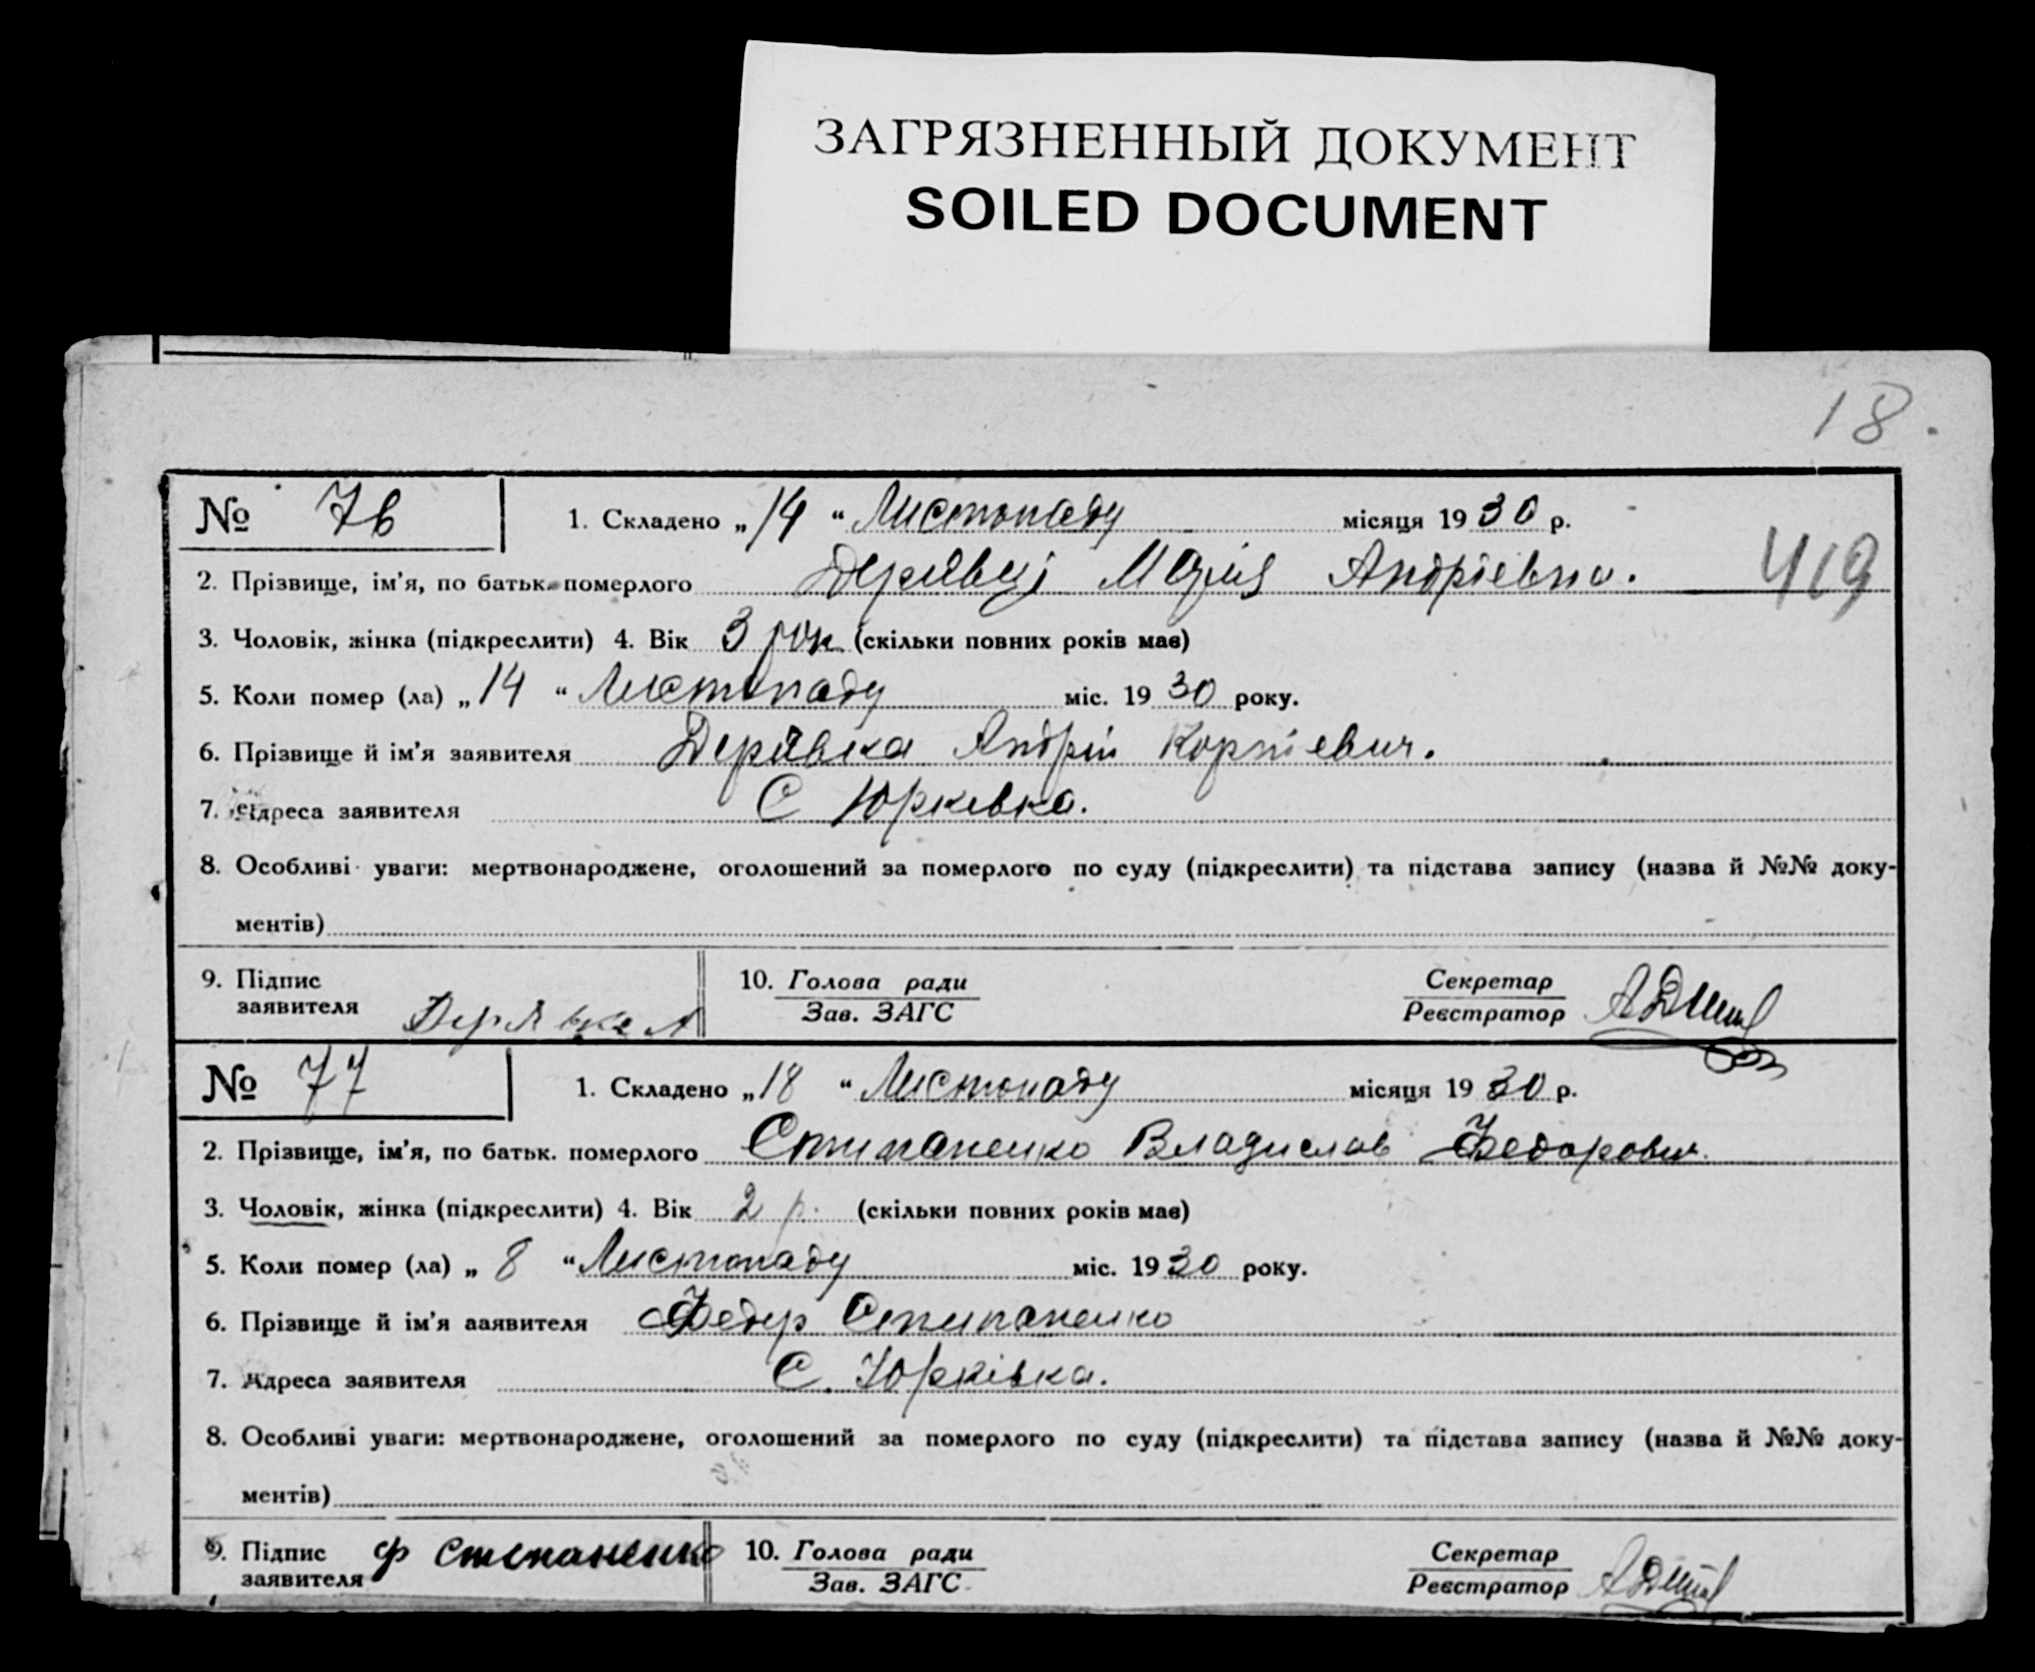 ЗАГРЯЗНЕННЫЙ ДОКУМЕНТ
SOILED DOCUMENT
18.
№ 76 1. Складено „14“ Листопаду місяця 1930 р.
419
2. Прізвище, ім'я, по батьк. померлого Марія Андрієвна.
3. Чоловік, жінка (підкреслити) 4. Вік 3 рок (скільки повних років має)
5. Коли помер (ла) „14“ Листопаду міс. 1930 року.
6. Прізвище й ім'я заявителя Дерявка Андрій Корнієвич.
7. Адреса заявителя С Юрківка.
8. Особливі уваги: мертвонароджене, оголошений за померлого по суду (підкреслити) та підстава запису (назва й №№ доку-
ментів)
9. Підпис 10. Голова ради Секретар
заявителя Дерявка А Зав. ЗАГС Реєстратор
№ 77 1. Складено „18“ Листопаду місяця 1930 р.
2. Прізвище, ім'я, по батьк. померлого Стипаненко Владислав Федорович.
3. Чоловік, жінка (підкреслити) 4. Вік 2 р. (скільки повних років має)
5. Коли помер (ла) „8“ Листопаду міс. 1930 року.
6. Прізвище й ім'я заявителя Федир Стипаненко
7. Адреса заявителя С. Юрківка.
8. Особливі уваги: мертвонароджене, оголошений за померлого по суду (підкреслити) та підстава запису (назва й №№ доку-
ментів)
9. Підпис Ф Степаненко 10. Голова ради Секретар
заявителя Зав. ЗАГС Реєстратор